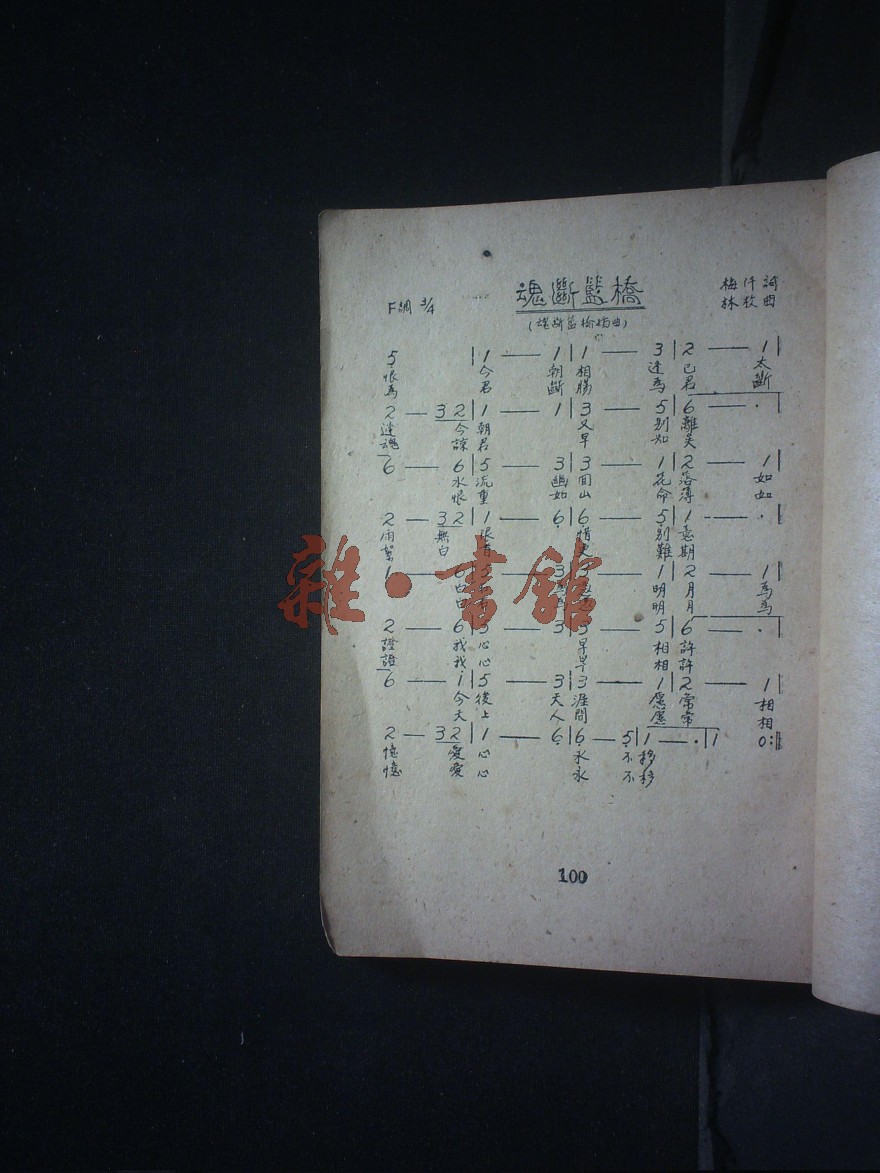 魂斷藍橋
(魂斷藍橋插曲)
F調 3/4
梅仟詞
林枚曲
5 | 1 — 1 | 1 — 3 | 2 — 1 |
恨 今 朝 相 逢 已 太
為 君 斷 腸 為 君 斷
2 — 3 2 | 1 — 1 | 3 — 5 | 6 — · |
逢 今 朝 又 別 離
魂 諒 君 早 知 矣
6 — 6 | 5 — 3 | 3 — 1 | 2 — 1 |
水 流 幽 花 落 如
恨 重 如 山 命 薄 如
2 — 3 2 | 1 — 6 | 6 — 5 | 1 — · |
雨 無 限 惜 別 意
絮 白 首 更 難 期
1 — 6 5 — 3 3 — 1 | 2 — 1 |
白 明 月 為
白 明 月 為
2 — 6 5 — 3 5 — 5 | 6 — · |
證 我 心 早 相 許
證 我 心 早 相 許
6 — 1 | 5 — 3 | 3 — 1 | 2 — 1 |
今 後 天 涯 愿 常 相
天 上 人 間 愿 常 相
2 — 3 2 | 1 — 6 | 6 — 5 | 1 — · | 1 0 :‖
憶 愛 心 永 不 移
憶 愛 心 永 不 移
100
雜·書館